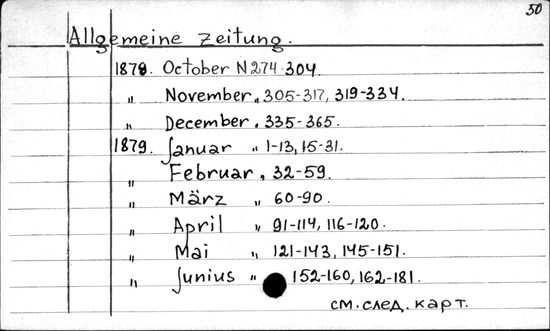 50
Allgemeine Zeitung.
1878. October N 274-304.
" November " 305-317, 319-334.
" December " 335-365.
1879. Januar " 1-13, 15-31.
" Februar " 32-59.
" März " 60-90.
" April " 91-114, 116-120.
" Mai " 121-143, 145-151.
" Junius " 152-160, 162-181.
см. след. карт.